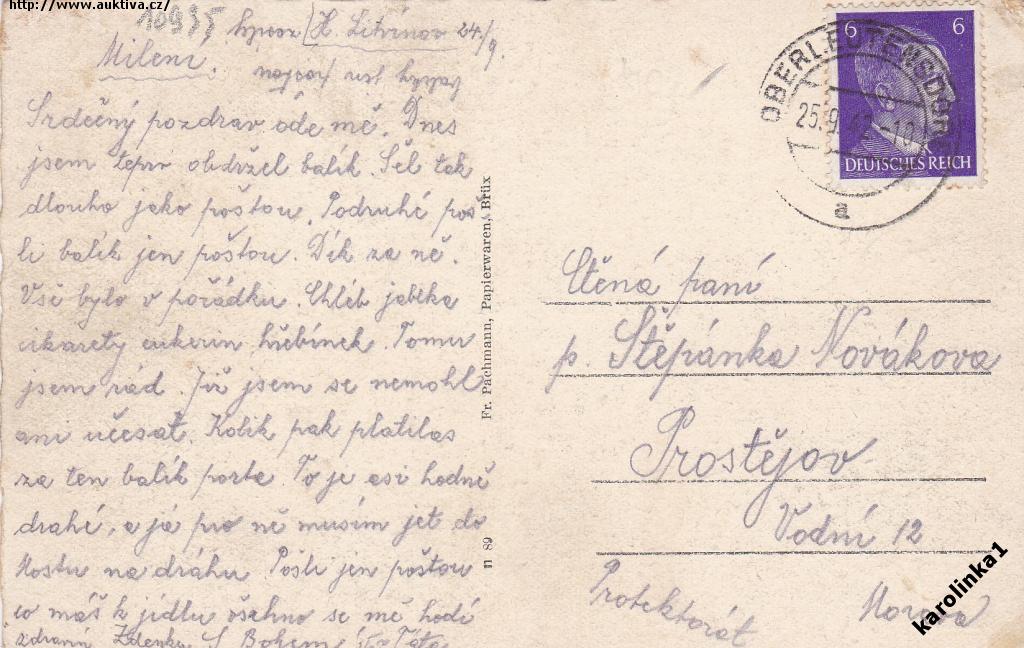 http://www.auktiva.cz/
10935
H. Litvínov 24./9.
Mileni.
Srdečný pozdrav ode mě. Dnes
jsem teprv obdržel balík. Šel tak
dlouho jako poštou. Podruhé poš
li balík jen poštou. Dík za ně.
Vše bylo v pořádku. Chléb jablka
cikarety cukerin hřebínek. Tomu
jsem rád. Již jsem se nemohl
ani učesat. Kolik pak platilas
za ten balík porta. To je asi hodně
drahé, a já pro ně musím jet do
Mostu na dráhu. Pošli jen poštou
co máš k jídlu všechno se mě hodí
zdravím Zdenku S Bohem Táta
Fr. Pachmann, Papierwaren, Brüx
n 89
OBERLEUTENSDORF
25.9.42-10
a
6 6
DEUTSCHES REICH
Ctěná paní
p. Štěpánka Novákova
Prostějov
Vodní 12
Protektorát Morava
karolinka1